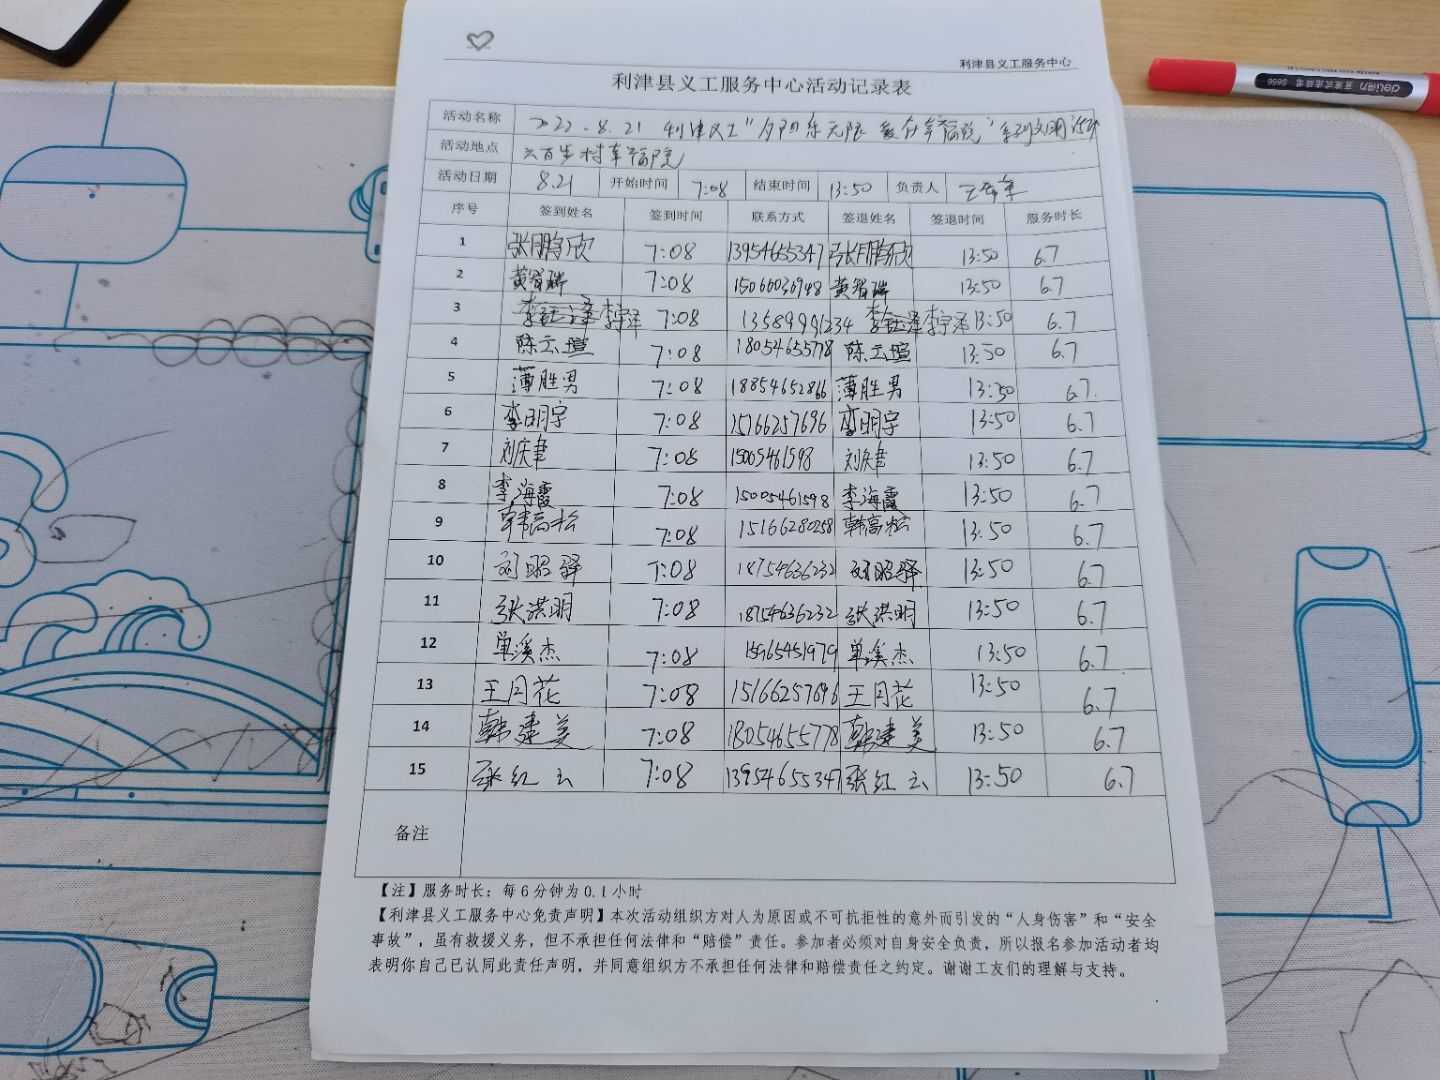 利津县义工服务中心
利津县义工服务中心活动记录表
活动名称 2022.8.21 利津义工"夕阳乐无限 爱在幸福院"系列文明活动
活动地点 六百步村幸福院
活动日期 8.21 开始时间 7:08 结束时间 13:50 负责人
序号 签到姓名 签到时间 联系方式 签退姓名 签退时间 服务时长
1 张鹏欣 7:08 13954655347 张鹏欣 13:50 6.7
2 黄智瑞 7:08 15066036948 黄智瑞 13:50 6.7
3 李宇泽 7:08 13589991234 李宇泽 13:50 6.7
4 陈云瑄 7:08 18054655778 陈云瑄 13:50 6.7
5 薄胜男 7:08 18854652866 薄胜男 13:50 6.7.
6 李明宇 7:08 15166257696 李明宇 13:50 6.7
7 刘庆聿 7:08 15005461598 刘庆聿 13:50 6.7
8 李海霞 7:08 15005461598 李海霞 13:50 6.7
9 韩高松 7:08 15166280258 韩高松 13:50 6.7
10 刘昭驿 7:08 18754636232 刘昭驿 13:50 6.7
11 张洪明 7:08 18754636232 张洪明 13:50 6.7
12 单溪杰 7:08 15965451979 单溪杰 13:50 6.7
13 王月花 7:08 15166257696 王月花 13:50 6.7
14 韩建美 7:08 18054655778 韩建美 13:50 6.7
15 张红云 7:08 13954655347 张红云 13:50 6.7
备注
【注】服务时长：每6分钟为0.1小时
【利津县义工服务中心免责声明】本次活动组织方对人为原因或不可抗拒性的意外而引发的“人身伤害”和“安全
事故”，虽有救援义务，但不承担任何法律和“赔偿”责任。参加者必须对自身安全负责，所以报名参加活动者均
表明你自己已认同此责任声明，并同意组织方不承担任何法律和赔偿责任之约定。谢谢工友们的理解与支持。
deli得力 S656